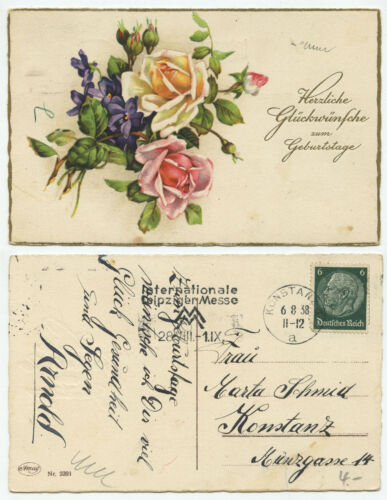 Herzliche
Glückwünsche
zum
Geburtstage
Zum Geburtstage
wünsche ich Dir viel
Glück Gesundheit
und Segen
Arnold
Internationale
Leipziger Messe
28.VIII.-1.IX.
KONSTANZ
6 8 38
11-12
a
6 6
Deutsches Reich
Frau
Marta Schmid
Konstanz
Münzgasse 14
Amag
Nr. 3391
4.-